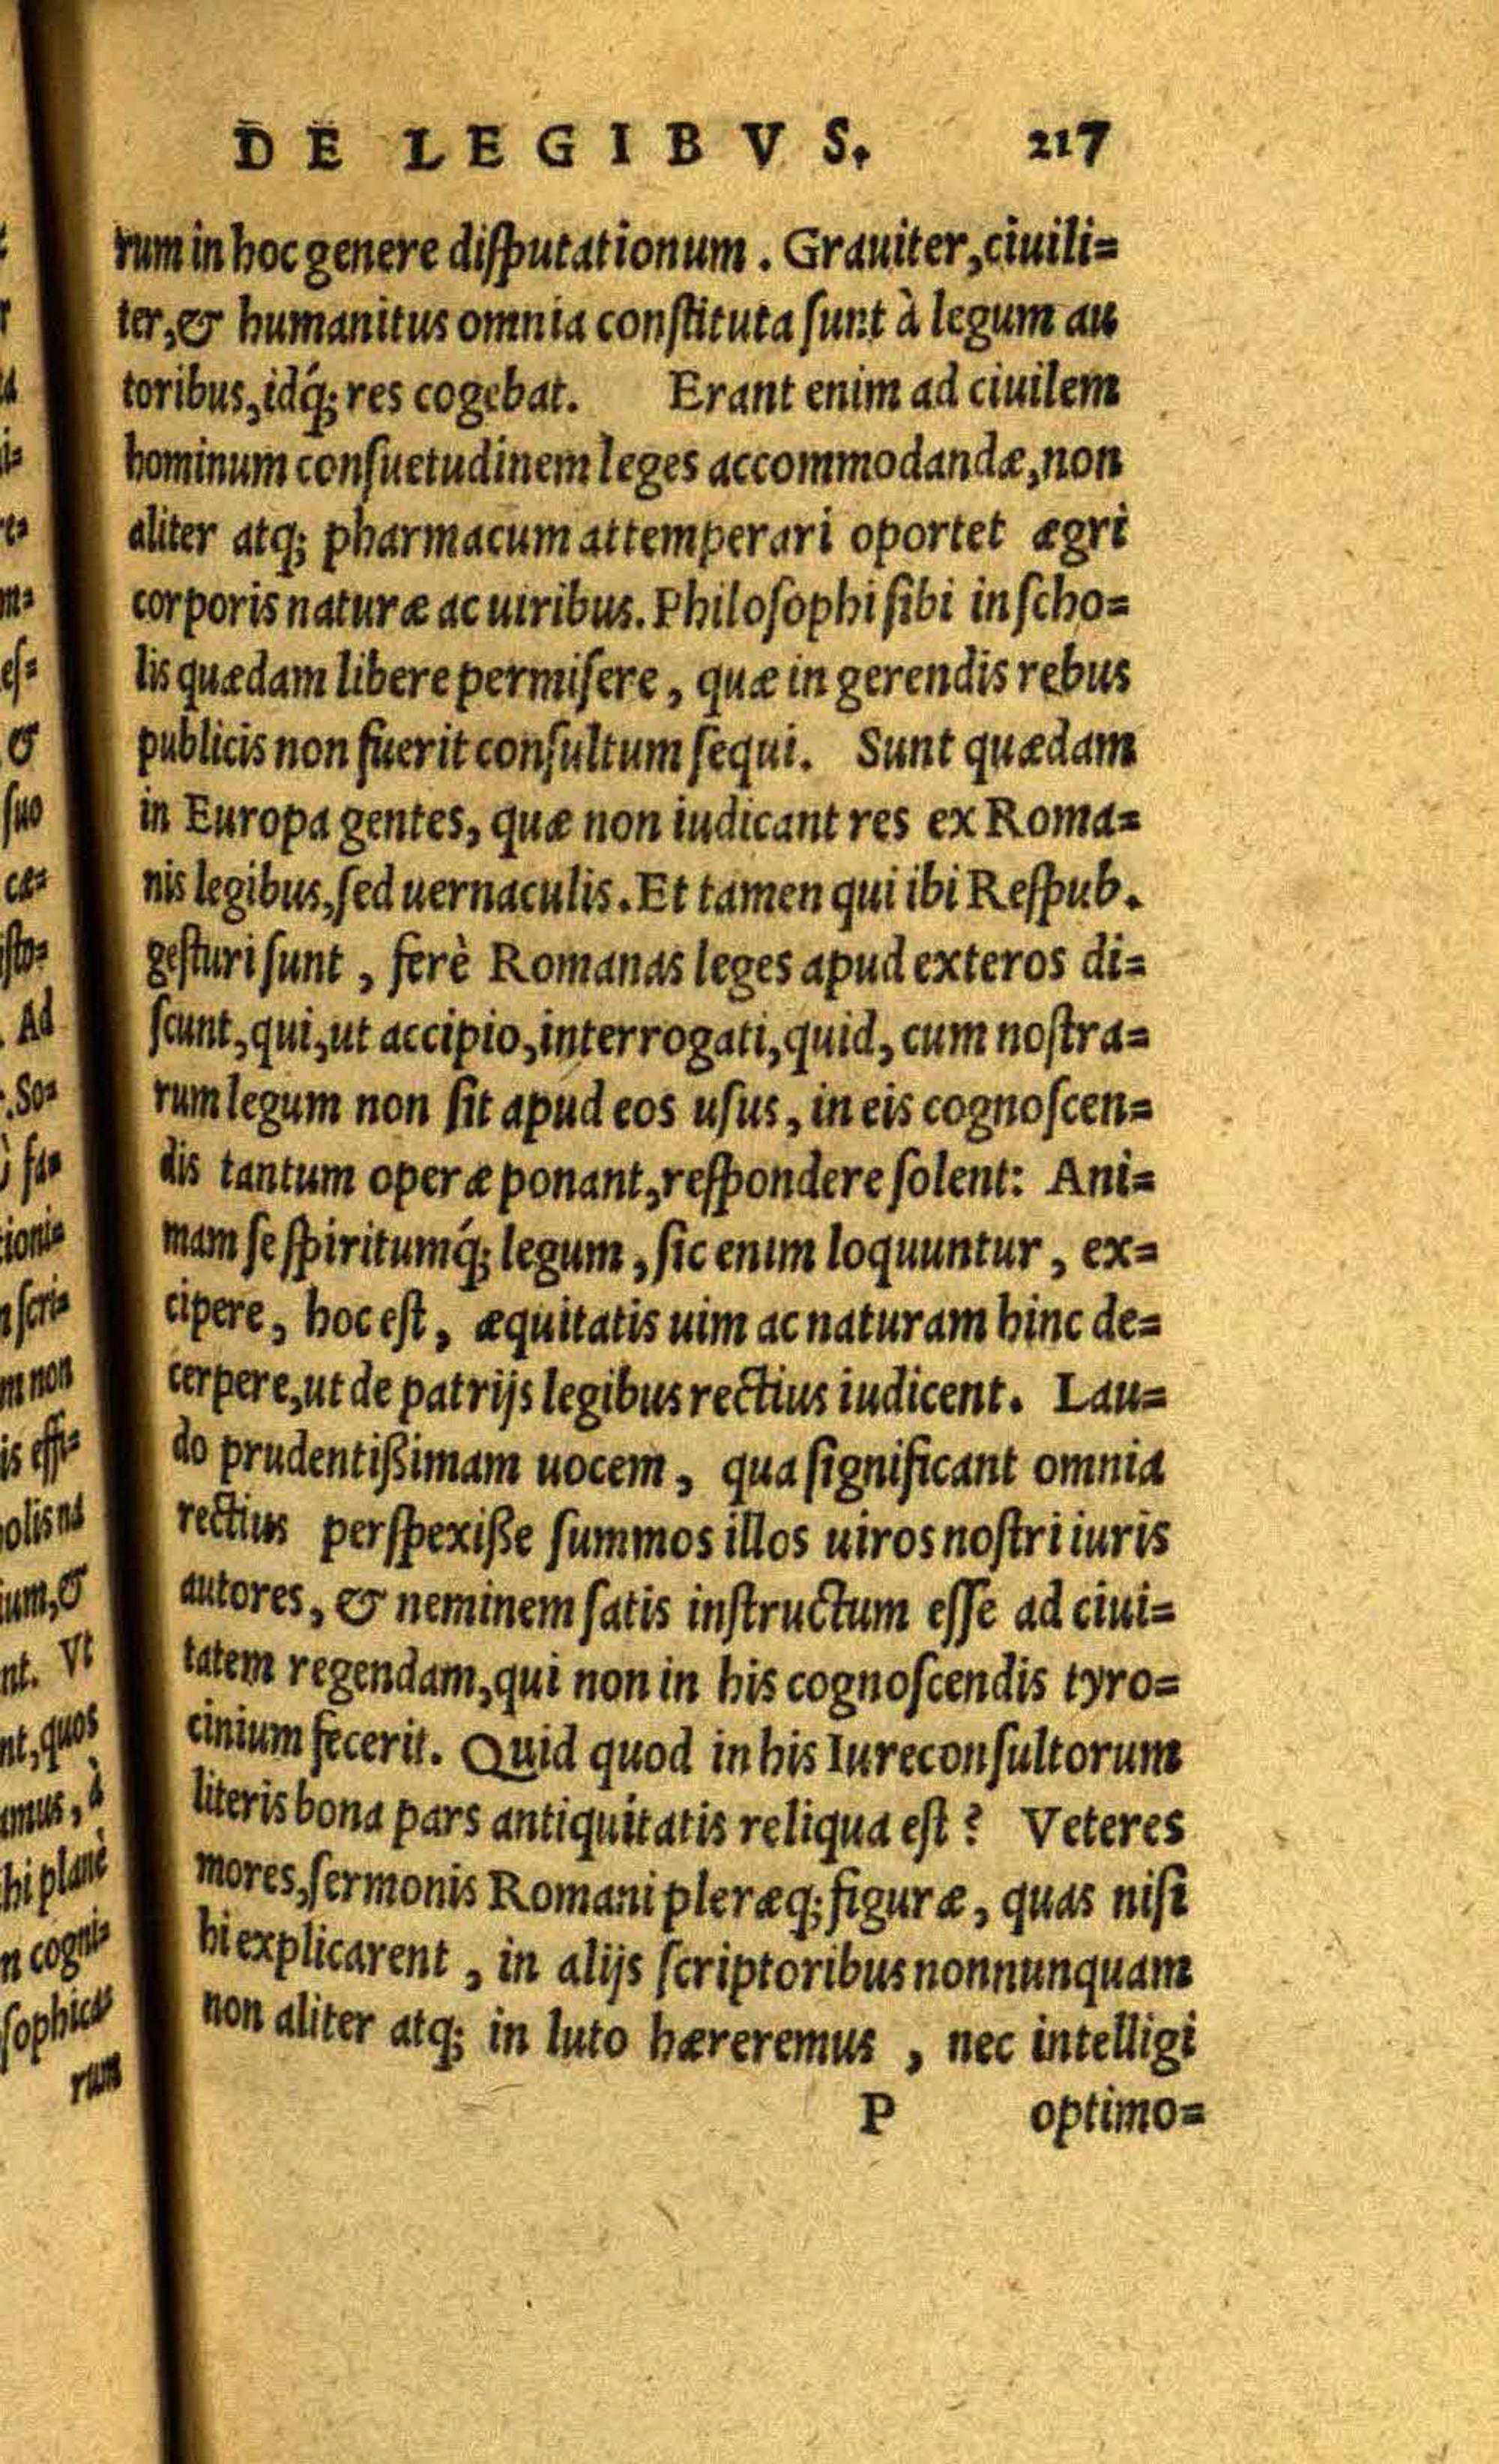 DE LEGIBVS. 217
rum in hoc genere diſputationum. Grauiter, ciuili=
ter, & humanitus omnia conſtituta ſunt à legum au
toribus, idq́; res cogebat. Erant enim ad ciuilem
hominum conſuetudinem leges accommodandæ, non
aliter atq; pharmacum attemperari oportet ægri
corporis naturæ ac uiribus. Philoſophi ſibi in ſcho=
lis quædam libere permiſere, quæ in gerendis rebus
publicis non fuerit conſultum ſequi. Sunt quædam
in Europa gentes, quæ non iudicant res ex Roma=
nis legibus, ſed uernaculis. Et tamen qui ibi Reſpub.
geſturi ſunt, ferè Romanas leges apud exteros di=
ſcunt, qui, ut accipio, interrogati, quid, cum noſtra=
rum legum non ſit apud eos uſus, in eis cognoſcen=
dis tantum operæ ponant, reſpondere ſolent: Ani=
mam ſe ſpiritumq́; legum, ſic enim loquuntur, ex=
cipere, hoc eſt, æquitatis uim ac naturam hinc de=
cerpere, ut de patrijs legibus rectius iudicent. Lau=
do prudentißimam uocem, qua ſignificant omnia
rectius perſpexiße ſummos illos uiros noſtri iuris
autores, & neminem ſatis inſtructum eſſe ad ciui=
tatem regendam, qui non in his cognoſcendis tyro=
cinium fecerit. Quid quod in his Iureconſultorum
literis bona pars antiquitatis reliqua eſt? Veteres
mores, ſermonis Romani pleræq; figuræ, quas niſi
hi explicarent, in alijs ſcriptoribus nonnunquam
non aliter atq; in luto hæreremus, nec intelligi
P optimo=